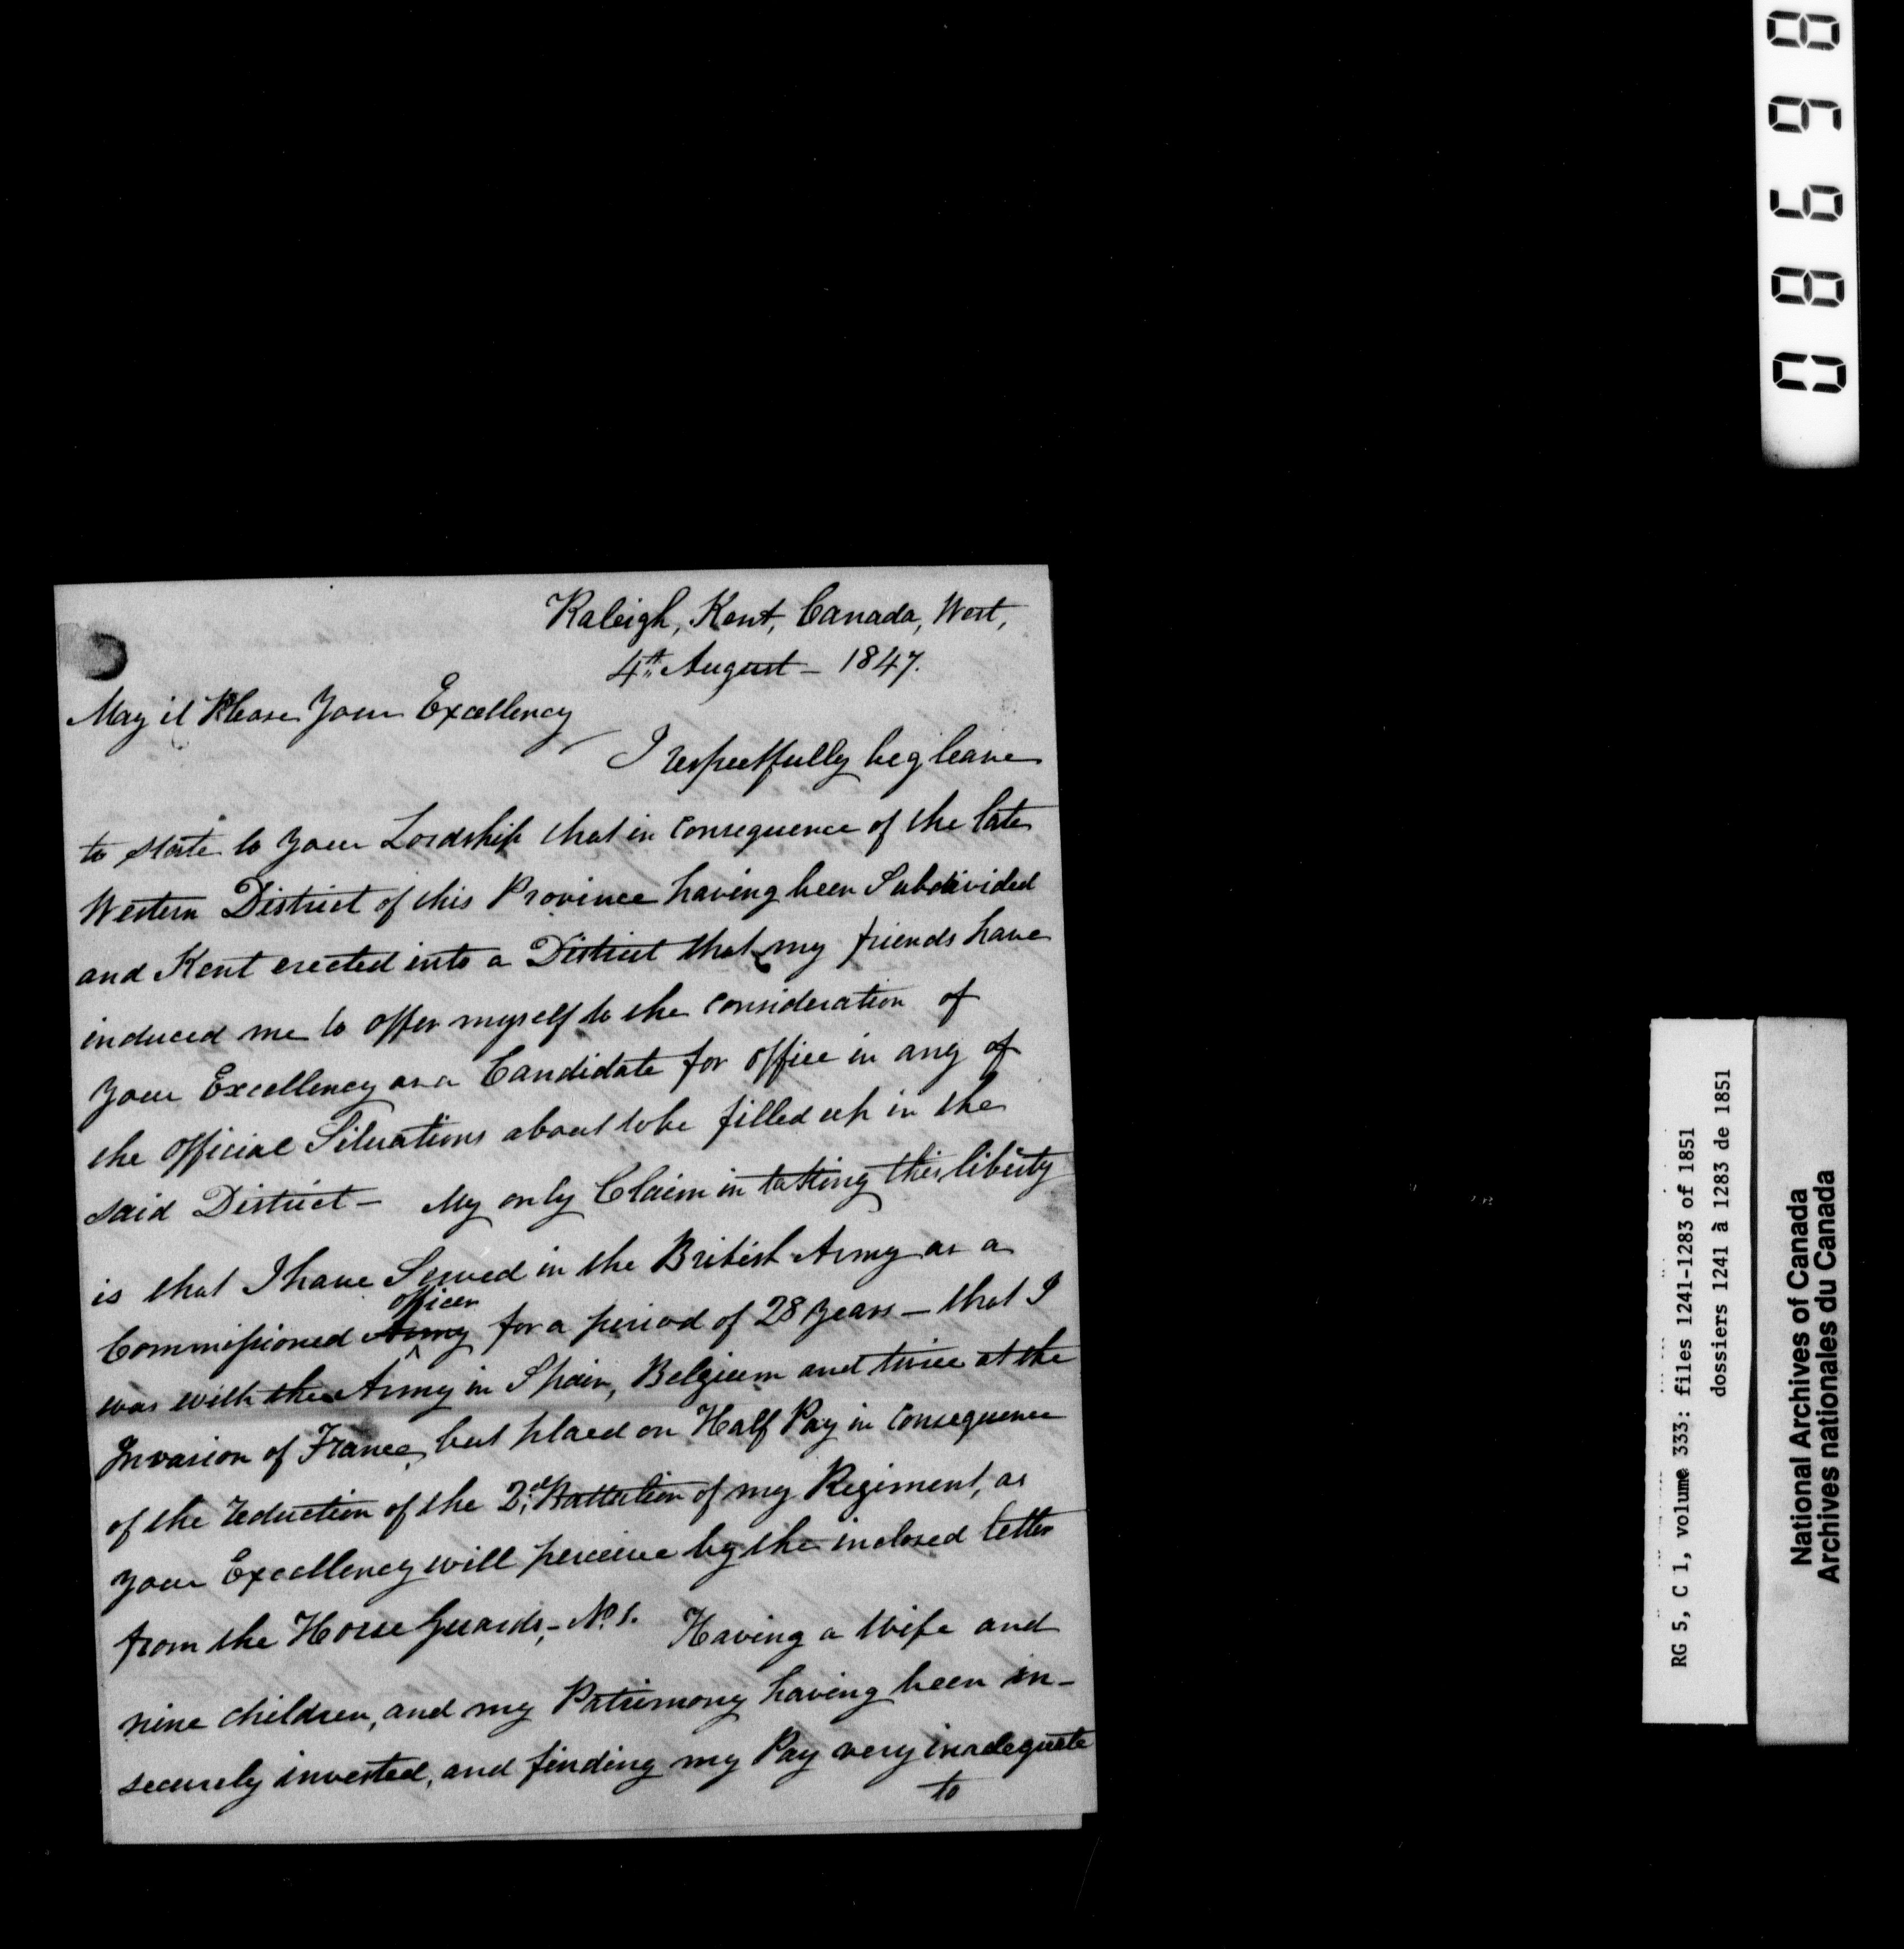 Raleigh, Kent, Canada, West,
4th August - 1847.
May it Please Your Excellency
I respectfully beg leave
to state to your Lordship that in consequence of the late
Western District of this Province having been Subdivided
and Kent erected into a District that my friends have
induced me to offer myself to the consideration of
your Excellency as a Candidate for office in any of
the official Situations about to be filled up in the
said District - My only Claim in taking this liberty
is that I have Served in the British Army as a
officer
Commissioned Army for a period of 28 years - that I
was with the Army in Spain, Belgium and twice at the
Invasion of France, but placed on Half Pay in consequence
of the reduction of the 2d Battalion of my Regiment, as
your Excellency will perceive by the inclosed letter
from the Horse Guards, - No. 1. Having a Wife and
nine children, and my Patrimony having been in-
securely invested, and finding my Pay very inadequate
to
08698
RG 5, C 1, volume 333: files 1241-1283 of 1851
dossiers 1241 à 1283 de 1851
National Archives of Canada
Archives nationales du Canada